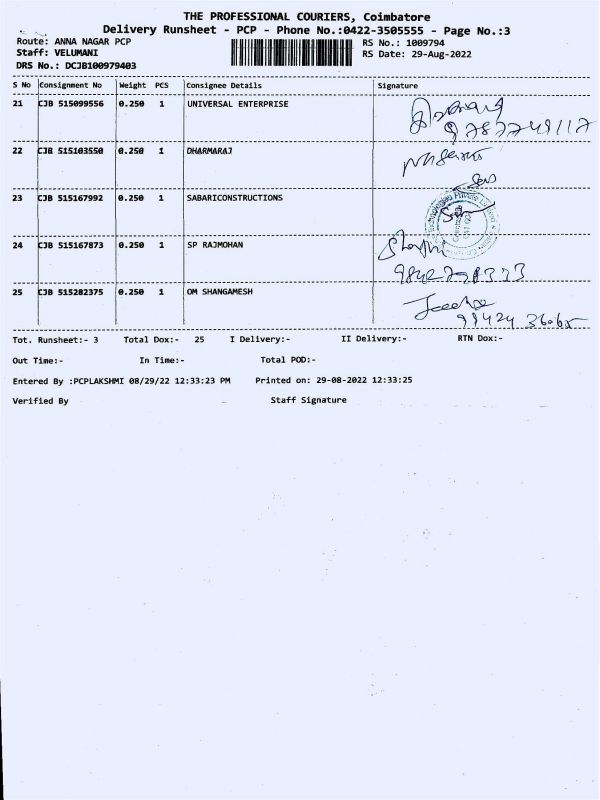 THE PROFESSIONAL COURIERS, Coimbatore
Delivery Runsheet - PCP - Phone No.:0422-3505555 - Page No.:3
Route: ANNA NAGAR PCP
RS No.: 1009794
Staff: VELUMANI
RS Date: 29-Aug-2022
DRS No.: DCJB100979403
S No Consignment No Weight PCS Consignee Details Signature
21 CJB 515099556 0.250 1 UNIVERSAL ENTERPRISE
9787749117
22 CJB 515103550 0.250 1 DHARMARAJ
23 CJB 515167992 0.250 1 SABARICONSTRUCTIONS
24 CJB 515167873 0.250 1 SP RAJMOHAN
25 CJB 515282375 0.250 1 OM SHANGAMESH
Tot. Runsheet:- 3 Total Dox:- 25 I Delivery:- II Delivery:- RTN Dox:-
Out Time:- In Time:- Total POD:-
Entered By :PCPLAKSHMI 08/29/22 12:33:23 PM Printed on: 29-08-2022 12:33:25
Verified By Staff Signature